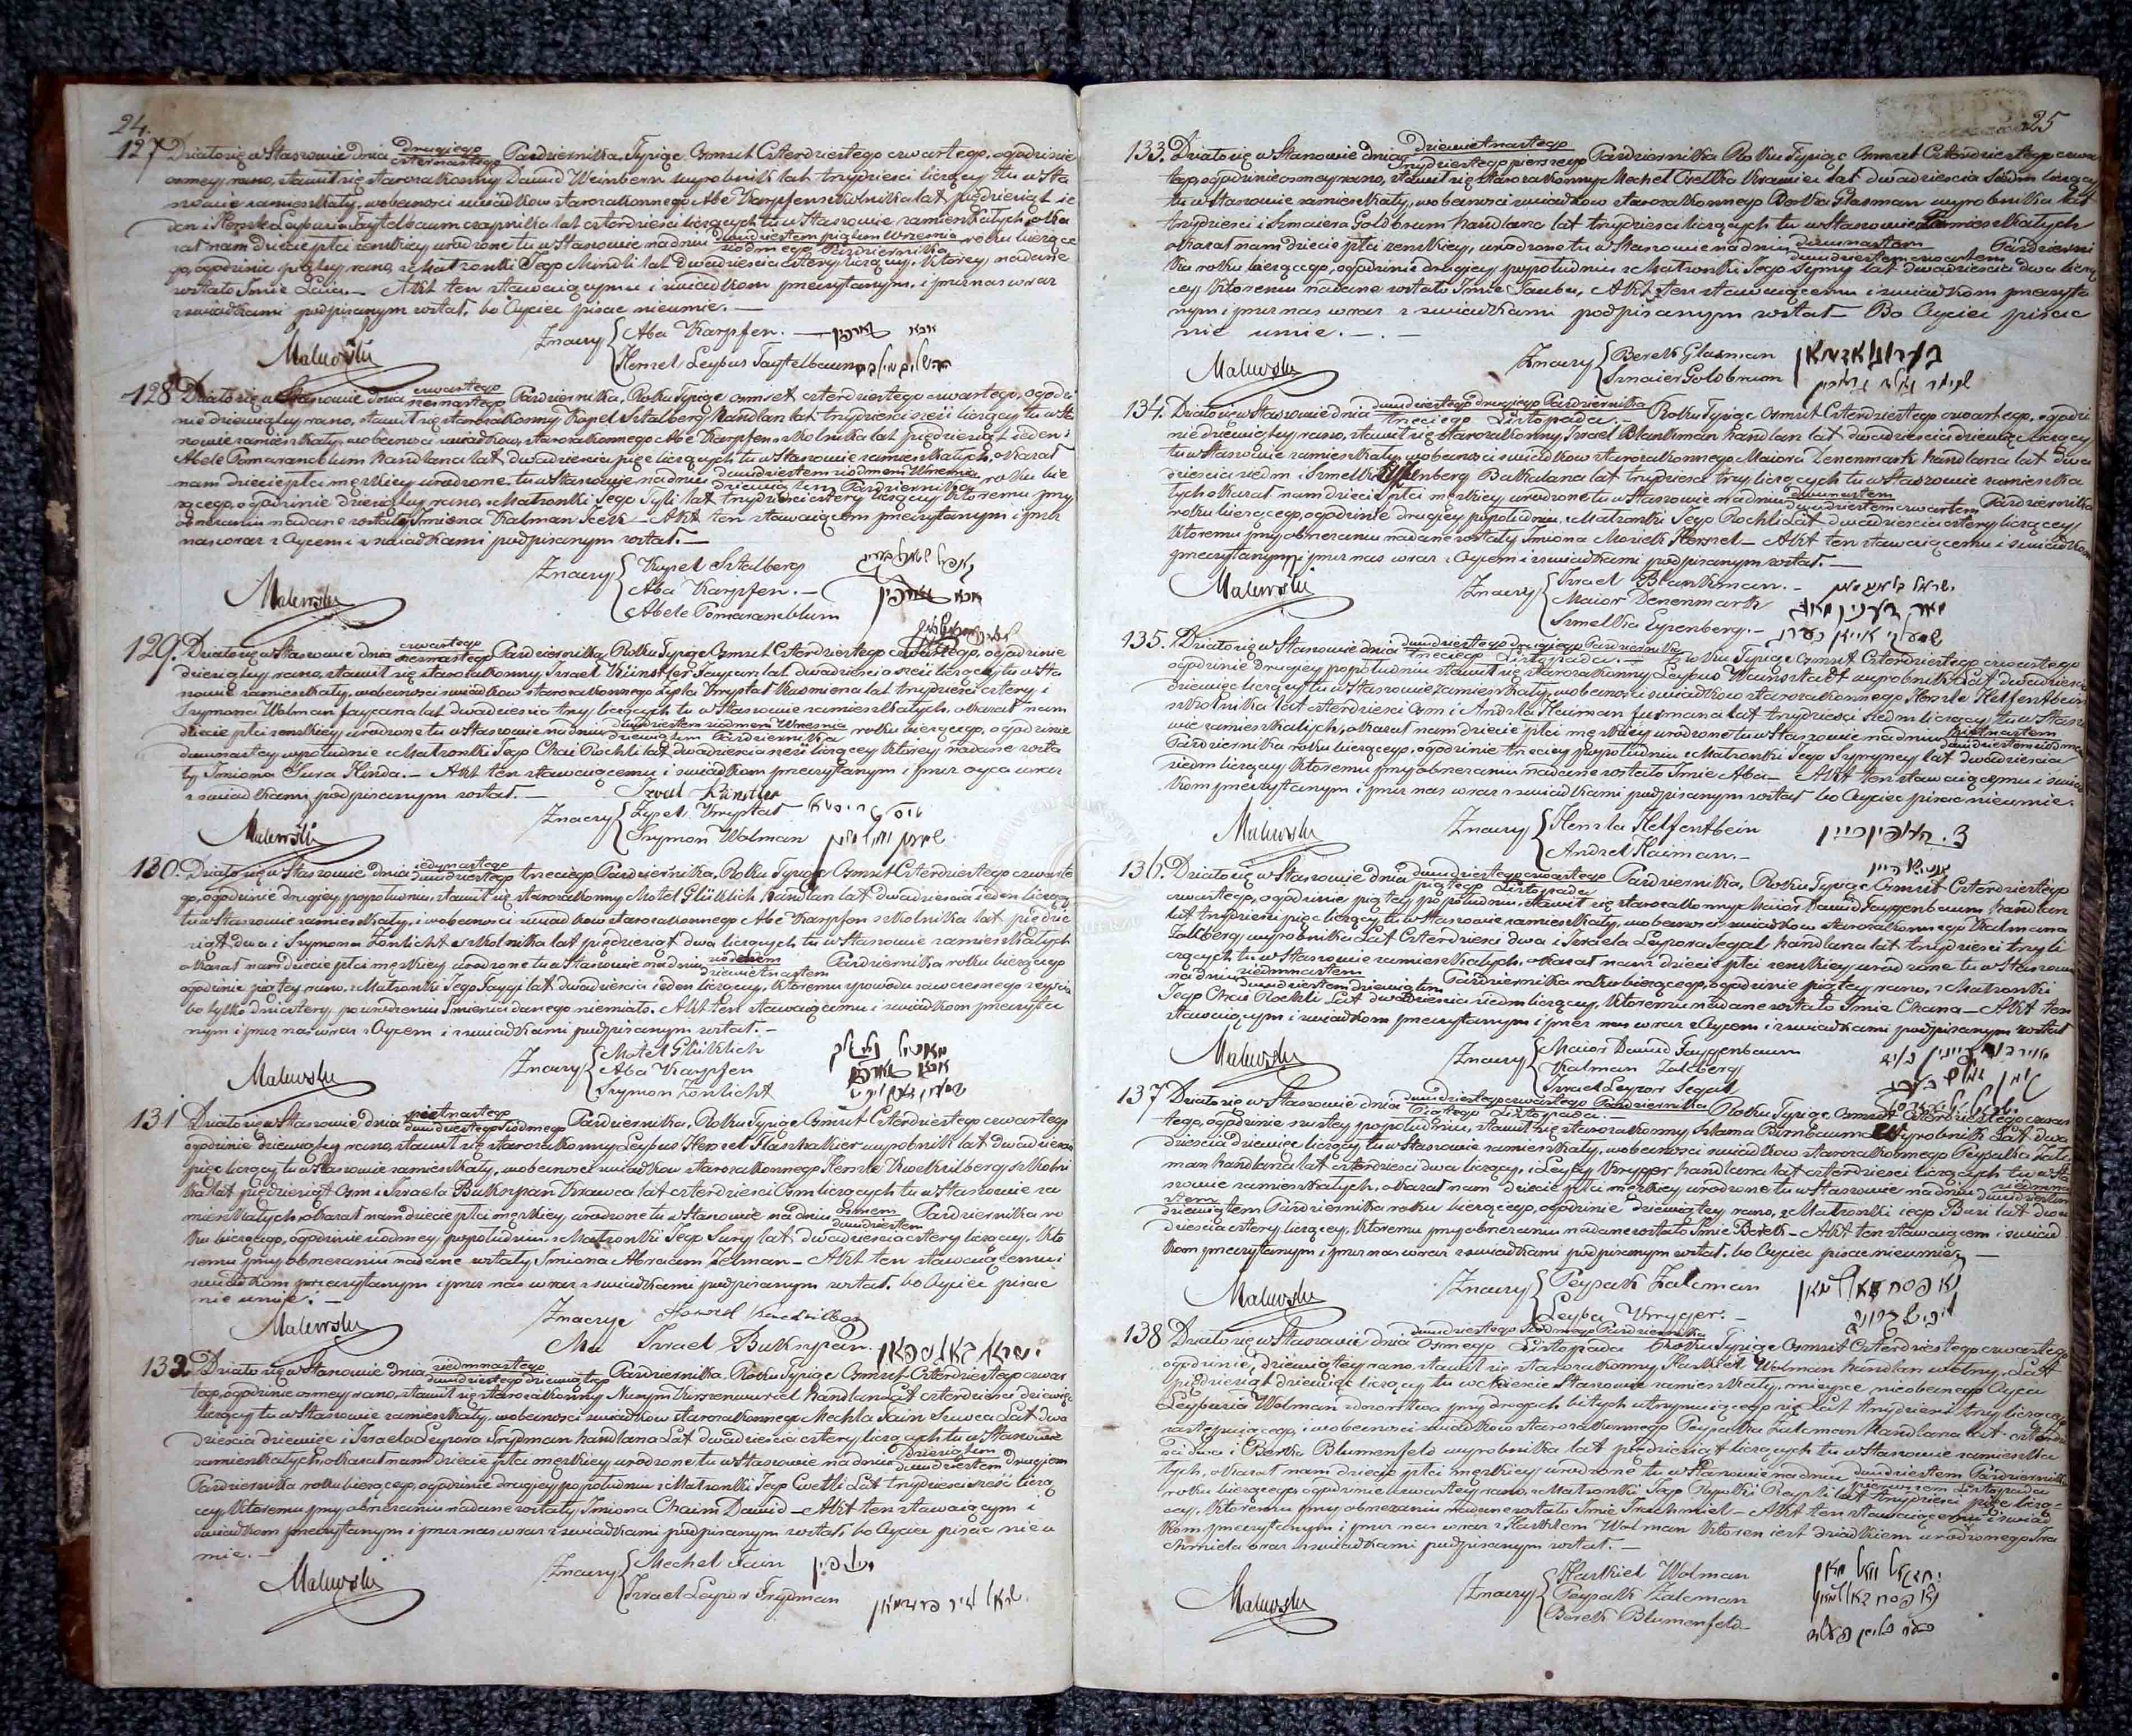 24.
127 Działo się w Staszowie dnia drugiego / czternastego Października Tysiąc Osmset Czterdziestego czwartego, o godzinie
osmey rano, stawił się starozakonny Dawid Weinbern wyrobnik lat trzydzieści liczący tu w Sta
szowie zamieszkały, w obecności świadków starozakonnego Abe Karpfen szkolnika lat pięćdziesiąt ie
den i Herszka Leybusia Taytelbaum czapnika lat czterdzieści liczących tu w Staszowie zamieszkałych, oka
zał nam dziecie płci żeńskiey urodzone tu w Staszowie na dniu dwudziestem piątem Września / siodmego Października roku bieżące
go, o godzinie piątey rano, z Małżonki Jego Mindli lat dwadzieścia cztery liczącey, którey nadane
zostało Imie Laia. — Akt ten stawaiącemu i świadkom przeczytanym, i przez nas wraz
z świadkami podpisanym został, bo Oyciec pisać nieumie. —
Malewski
Znaczy { Aba Karpfen. —
Herszel Leybus Taytelbaum
128 Działo się w Staszowie dnia czwartego / szesnastego Października, Roku Tysiąc Osmset czterdziestego czwartego, o godzi
nie dziewiątey rano, stawił się starozakonny Kopel Sztalberg handlarz lat trzydzieści sześć liczący tu w Sta
szowie zamieszkały, w obecności świadków, starozakonnego Abe Karpfen szkolnika lat pięćdziesiąt ieden i
Abele Pomaranzblum handlarza lat dwadzieścia pięć liczących tu w Staszowie zamieszkałych, okazał
nam dziecie płci męskiey urodzone tu w Staszowie na dniu dwudziestem siodmem Września / dziewiątem Października roku bie
żącego, o godzinie dziesiątey rano, z Małżonki Jego Tyli lat trzydzieści cztery liczącey któremu przy
obrzezaniu nadane zostały Imiona Kalman Icek — Akt ten stawaiącem przeczytanym i przez
nas wraz z Oycem i świadkami podpisanym został. —
Malewski
Znaczy { Kopel Sztalberg
Aba Karpfen. —
Abele Pomaranzblum
129. Działo się w Staszowie dnia czwartego / szesnastego Października, Roku Tysiąc Osmset Czterdziestego czwartego, o godzinie
dziesiątey rano, stawił się starozakonny Izrael Künstler lat dwadzieścia sześć liczący tu w Sta
szowie zamieszkały, w obecności świadków starozakonnego Zypla Kryształ lat trzydzieści cztery i
Szymona Wolman lat dwadzieścia trzy liczących tu w Staszowie zamieszkałych, okazał nam
dziecie płci żeńskiey urodzone tu w Staszowie na dniu dwudziestem siodmem Września / dziewiątem Października roku bieżącego, o godzinie
dwunastey w południe z Małżonki Jego Chai Rochli lat dwadzieścia sześć liczącey którey nadane zosta
ły Imiona Sura Hinda. — Akt ten stawaiącemu i świadkom przeczytanym i przez oyca wraz
z świadkami podpisanym został. —
Izrael Künstler
Malewski
Znaczy { Zypel Kryształ
Szymon Wolman
130. Działo się w Staszowie dnia iedynastego / dwudziestego trzeciego Października, Roku Tysiąc Osmset Czterdziestego czwarte
go, o godzinie drugiey popołudniu, stawił się starozakonny Motel Glüklich handlarz lat dwadzieścia ieden liczący
tu w Staszowie zamieszkały, w obecności świadków starozakonnego Abe Karpfen szkolnika lat pięćdzie
siąt dwa i Szymona Zonlicht szkolnika lat pięćdziesiąt dwa liczących tu w Staszowie zamieszkałych
okazał nam dziecie płci męskiey urodzone tu w Staszowie na dniu siodmem / dziewietnastem Października roku bieżącego
o godzinie piątey rano, z Małżonki Jego Faygi lat dwadzieścia ieden liczącey, któremu z powodu zawczesnego zeyścia
bo tylko dni cztery, po urodzeniu Imienia danego niemiało. Akt ten stawaiącemu i świadkom przeczyta
nym i przez nas wraz z Oycem i z świadkami podpisanym został. —
Malewski
Znaczy { Motel Glüklich
Aba Karpfen
Szymon Zonlicht
131 Działo się w Staszowie dnia pietnastego / dwudziestego siodmego Października, Roku Tysiąc Osmset Czterdziestego czwartego
o godzinie dziewiątey rano, stawił się starozakonny Leybus Herszel Flaszkalkier wyrobnik lat dwadzieścia
pięć liczący tu w Staszowie zamieszkały, w obecności świadków starozakonnego Herszle Kwekzilberg szkolni
ka lat pięćdziesiąt Osm i Izraela Bukszpan krawca lat czterdzieści Osm liczących tu w Staszowie za
mieszkałych okazał nam dziecie płci męskiey urodzone tu w Staszowie na dniu osmem / dwudziestem Października ro
ku bieżącego, o godzinie siodmey popołudniu, z Małżonki Jego Sury lat dwadzieścia cztery liczącey. Któ
remu przy obrzezaniu nadane zostały Imiona Abraam Zelman — Akt ten stawaiącemu i
świadkom przeczytanym i przez nas wraz z świadkami podpisanym został, bo Oyciec pisać
nie umie. —
Malewski
Znaczy
Izrael Bukszpan. ישראל באקספאן
132. Działo się w Staszowie dnia siedmnastego / dwudziestego dziewiątego Października, Roku Tysiąc Osmset Czterdziestego czwar
tego, o godzinie osmey rano, stawił się starozakonny Nusym Hirszenwurcel handlarz Lat czterdzieści dziewięć
liczący tu w Staszowie zamieszkały, w obecności świadków starozakonnego Mechla Fain Szewca Lat dwa
dzieścia dziewięć i Izraela Leyzora Frydman handlarza Lat dwadzieścia cztery liczących tu w Staszowie
zamieszkałych, okazał nam dziecie płci męskiey urodzone tu w Staszowie na dniu Dziesiątem / dwudziestem drugiem
Października roku bieżącego, o godzinie drugiey popołudniu z Małżonki Jego Cwetli Lat trzydzieści sześć liczą
cey któremu przy obrzezaniu nadane zostały Imiona Chaim Dawid — Akt ten stawaiącym i
świadkom przeczytanym i przez nas wraz z świadkami podpisanym został, bo Oyciec pisać nie u
mie. —
Malewski
Znaczy { Mechel Fain
Izrael Leyzor Frydman
25
133. Działo się w Staszowie dnia dziewietnastego / trzydziestego pierszego Października Roku Tysiąc Osmset Czterdziestego czwar
tego, o godzinie osmey rano, stawił się starozakonny Mechel Czelka kramiec lat dwadzieścia siedm liczący
tu w Staszowie zamieszkały, w obecności świadków starozakonnego Berka Glasman wyrobnika lat
trzydzieści i Szmaiera Goldbrum handlarza lat trzydzieści liczących tu w Staszowie zamieszkałych
okazał nam dziecie płci żeńskiey, urodzone tu w Staszowie na dniu dwunastem / dwudziestem czwartem Październi
ka roku bieżącego, o godzinie drugiey popołudniu z Małżonki Jego Symy lat dwadzieścia dwa liczą
cey któremu nadane zostało Imie Tauba, Akt ten stawaiącemu i świadkom przeczyta
nym i przez nas wraz z świadkami podpisanym został — Bo Oyciec pisać
nie umie. —
Malewski
Znaczy { Berek Glasman
Szmaier Goldbrum
134. Działo się w Staszowie dnia dwudziestego drugiego Października / trzeciego Listopada Roku Tysiąc Osmset Czterdziestego czwartego, o godzi
nie dziewiątey rano, stawił się starozakonny Izrael Blankman handlarz lat dwadzieścia dziewięć liczący
tu w Staszowie zamieszkały, w obecności świadków starozakonnego Maiora Denenmark handlarza lat dwa
dzieścia siedm i Szmelki Eyzenberg Bakałarza lat trzydzieści trzy liczących tu w Staszowie zamieszka
łych okazał nam dziecie płci męskiey urodzone tu w Staszowie na dniu dwunastem / dwudziestem czwartem Października
roku bieżącego, o godzinie drugiey popołudniu, z Małżonki Jego Rochli Lat dwadzieścia cztery liczącey
któremu przy obrzezaniu nadane zostały Imiona Moszek Herszel — Akt ten stawaiącemu i świadkom
przeczytanym i przez nas wraz z Oycem i z świadkami podpisanym został. —
Malewski
Znaczy { Izrael Blankman. —
Maior Denenmark
Szmelka Eyzenberg. —
135. Działo się w Staszowie dnia dwudziestego drugiego Października / trzeciego Listopada. — Roku Tysiąc Osmset Czterdziestego czwartego
o godzinie drugiey popołudniu stawił się starozakonny Leybus Wainsztadt wyrobnik Lat dwadzieścia
dziewięć liczący tu w Staszowie zamieszkały, w obecności świadków starozakonnego Herszle Helfenbein
szkolnika lat czterdzieści Osm i Andzla Haiman furmana lat trzydzieści siedm liczących tu w Staszo
wie zamieszkałych, okazał nam dziecie płci męskiey urodzone tu w Staszowie na dniu pietnastem / dwudziestem siodmem
Października roku bieżącego, o godzinie trzeciey popołudniu z Małżonki Jego lat dwadzieścia
siedm liczącey któremu przy obrzezaniu nadane zostało Imie Aba — Akt ten stawaiącemu i świad
kom przeczytanym i przez nas wraz z świadkami podpisanym został bo Oyciec pisać nieumie.
Malewski
Znaczy { Herszla Helfenbein
Andzel Haiman. —
136. Działo się w Staszowie dnia dwudziestego czwartego / piątego Listopada Października, Roku Tysiąc Osmset Czterdziestego
czwartego, o godzinie piątey popołudniu, stawił się starozakonny Maior Dawid Faygenbaum handlarz
lat trzydzieści pięć liczący tu w Staszowie zamieszkały, w obecności świadków starozakonnego Kalmana
Zalcberg wyrobnika Lat Czterdzieści dwa i Izraela Leyzora Segal handlarza lat trzydzieści trzy li
czących tu w Staszowie zamieszkałych, okazał nam dziecie płci żeńskiey urodzone tu w Staszowie
na dniu siedmnastem / dwudziestem dziewiątem Października roku bieżącego, o godzinie piątey rano, z Małżonki
Jego Chai Rochli Lat dwadzieścia siedm liczącey, któremu nadane zostało Imie Chana — Akt ten
stawaiącym i świadkom przeczytanym i przez nas wraz z Oycem i z świadkami podpisanym został
Malewski
Znaczy { Maior Dawid Faygenbaum
Kalman Zalcberg
Izrael Leyzor Segal
137 Działo się w Staszowie dnia dwudziestego czwartego Października / Piątego Listopada. — Roku Tysiąc Osmset Czterdziestego czwar
tego, o godzinie szóstey popołudniu, stawił się starozakonny Szlama Birnbaum Wyrobnik Lat dwa
dzieścia dziewięć liczący tu w Staszowie zamieszkały, w obecności świadków starozakonnego Peysaka Zalc
man handlarza lat czterdzieści dwa liczący, i Leyby Kryger handlarza lat czterdzieści liczących tu w Sta
szowie zamieszkałych, okazał nam dziecie płci męskiey urodzone tu w Staszowie na dniu siedmna
stem / dwudziestem dziewiątem Października roku bieżącego, o godzinie dziewiątey rano, z Małżonki iego Basi lat dwa
dzieścia cztery liczącey, któremu przy obrzezaniu nadane zostało Imie Berek — Akt ten stawaiącem i świad
kom przeczytanym i przez nas wraz z świadkami podpisanym został, bo Oyciec pisać nieumie —
Malewski
Znaczy { Peysak Zalcman
Leyba Kryger. —
138 Działo się w Staszowie dnia dwudziestego siodmego Października / osmego Listopada Roku Tysiąc Osmset Czterdziestego czwartego
o godzinie, dziewiątey rano, stawił się starozakonny Haskiel Wolman handlarz wolny, Lat
pięćdziesiąt dziewięć liczący tu w Mieście Staszowie zamieszkały, mieysce nieobecnego Oyca
Leybusia Wolman przy drogach bitych utrzymuiącego się Lat trzydzieści trzy liczącego
zastępuiącego, i w obecności świadków starozakonnego Peysaka Zalcman handlarza lat czterdzie
ści dwa i Berka Blumenfeld wyrobnika lat pięćdziesiąt liczących tu w Staszowie zamieszka
łych, okazał nam dziecie płci męskiey urodzone tu w Staszowie na dniu dwudziestem Października / pierwszem Listopada
roku bieżącego, o godzinie czwartey rano, z Małżonki Jego Rywki Reyzli lat trzydzieści pięć liczą
cey, któremu przy obrzezaniu nadane zostało Imie Srachmiel — Akt ten stawaiącemu i świad
kom przeczytanym i przez nas wraz z Haskelem Wolman któren iest dziadkiem urodzonego Sra
chmiela oraz z świadkami podpisanym został. —
Malewski
Znaczy { Haskiel Wolman
Peysak Zalcman
Berek Blumenfeld